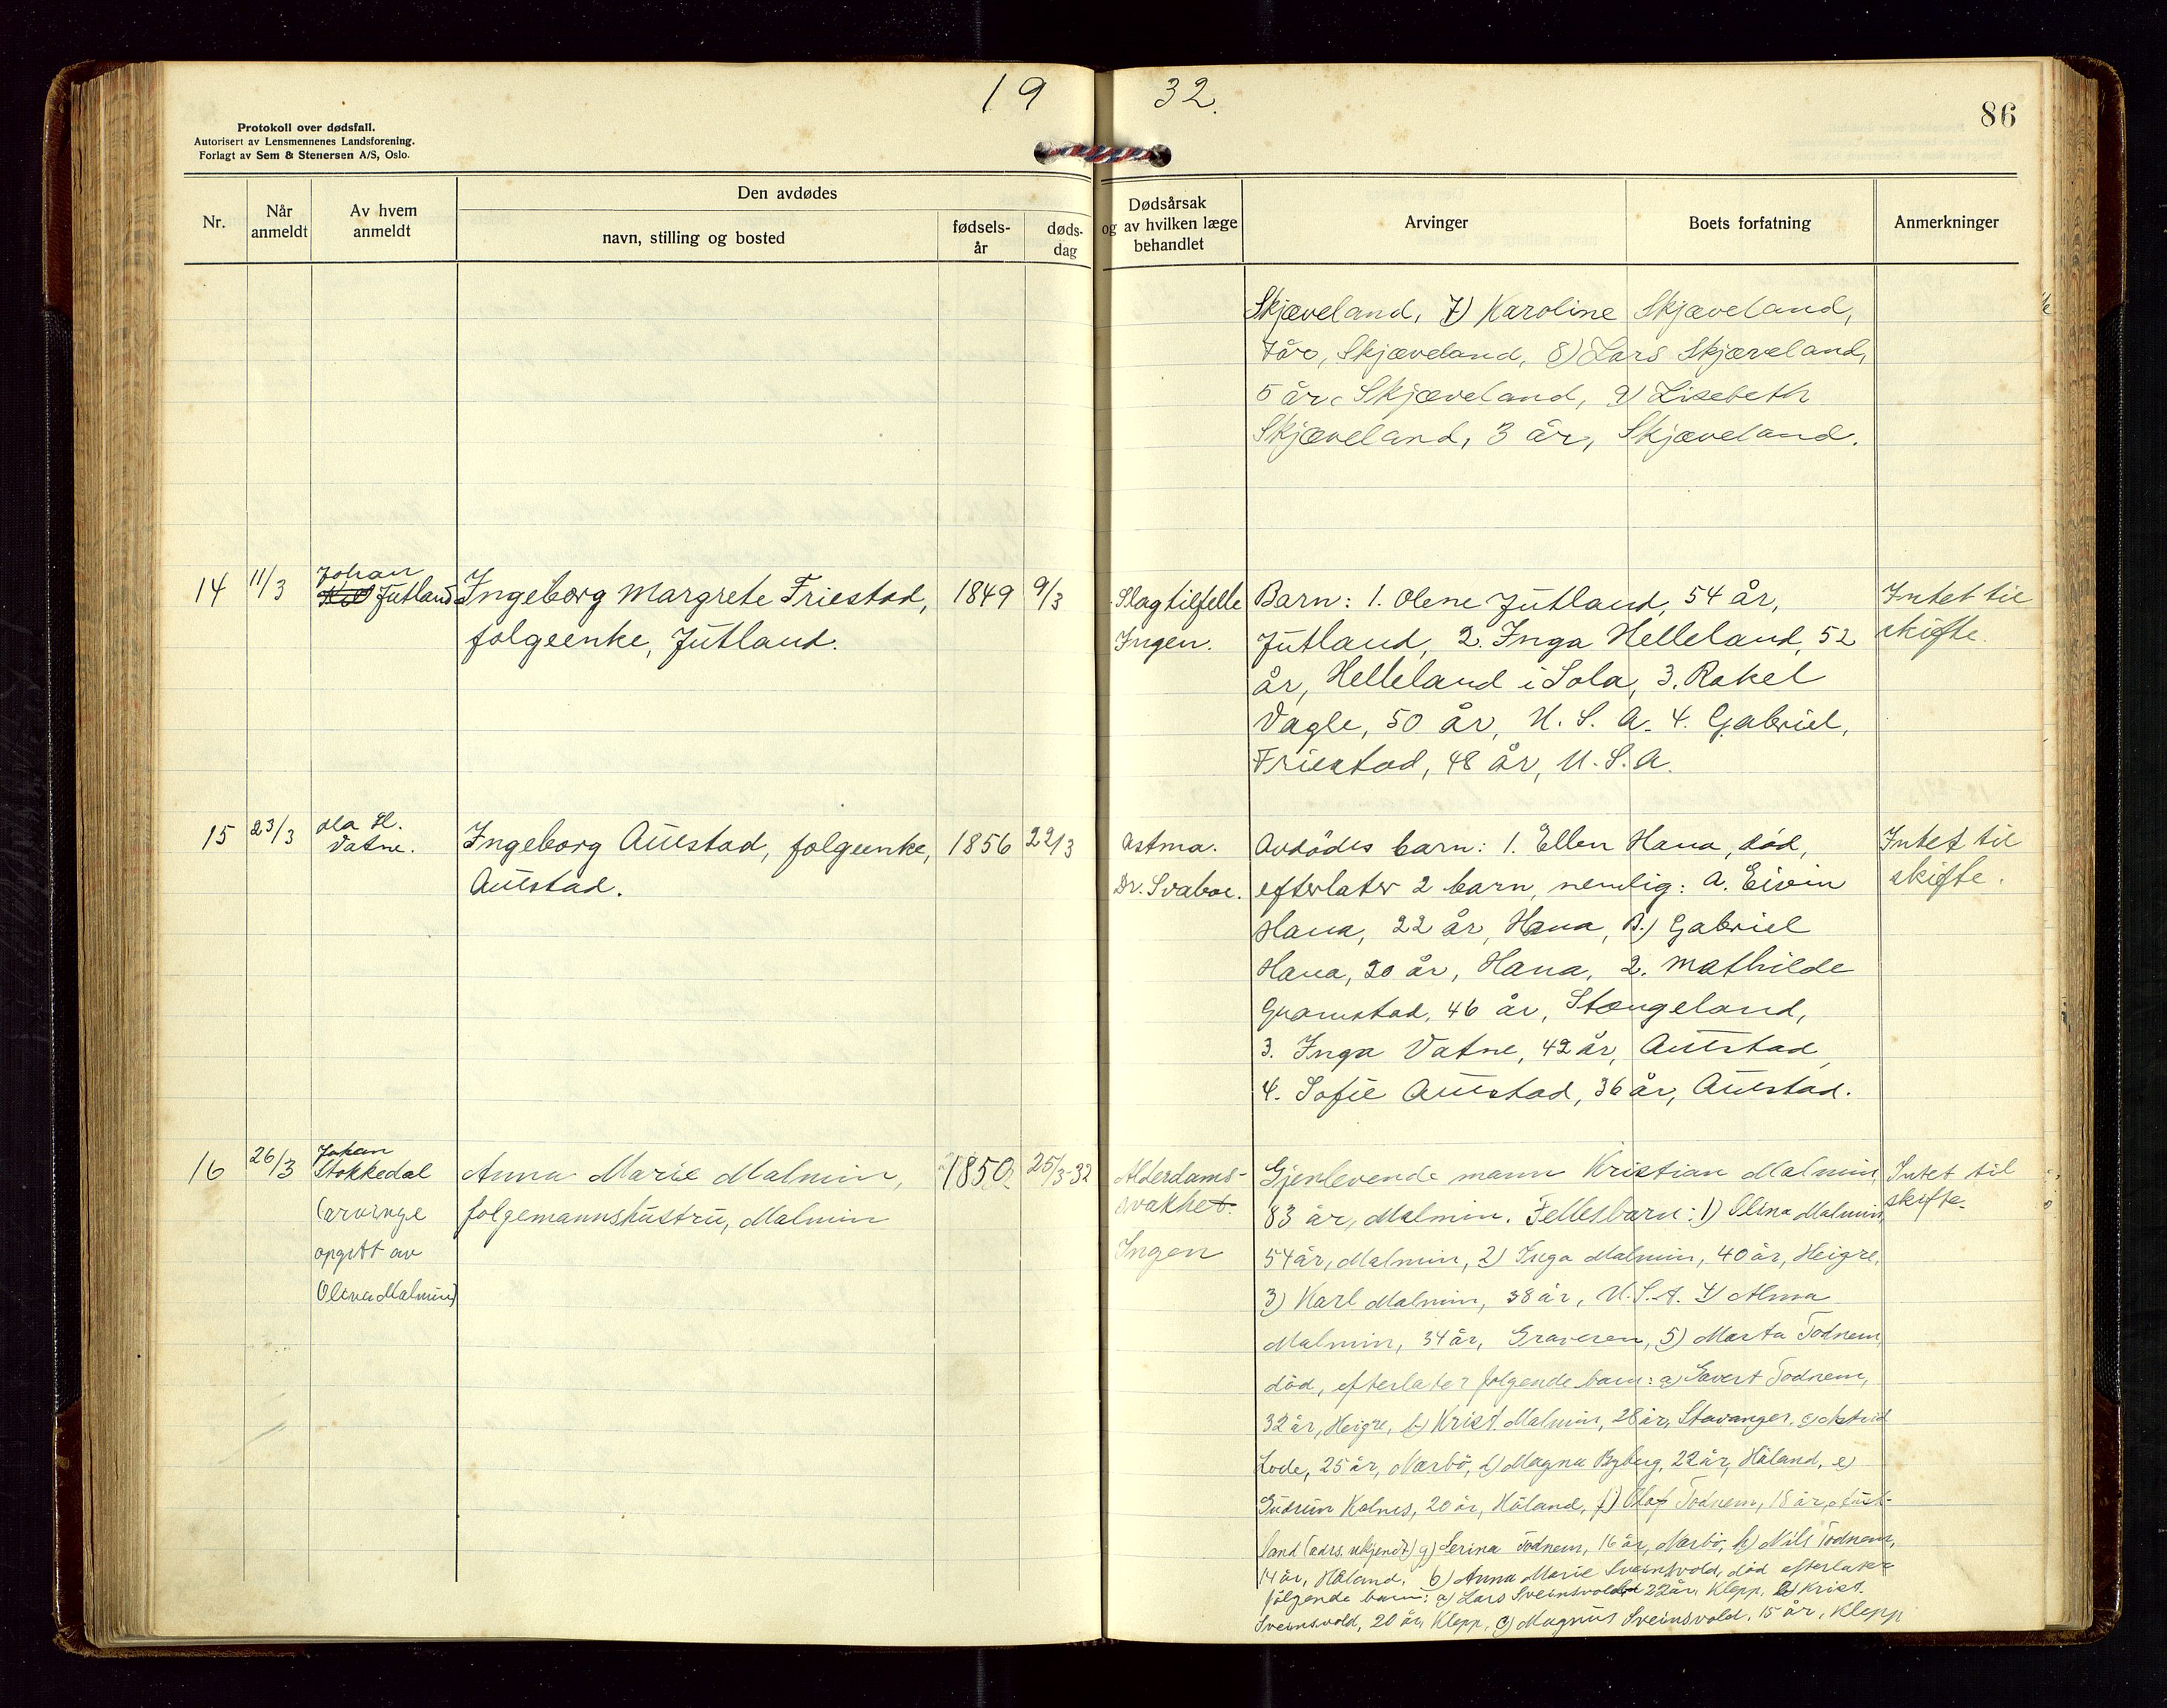 19 32.
86
Protokoll over dødsfall.
Autorisert av Lensmennenes Landsforening.
Forlagt av Sem & Stenersen A/S, Oslo.
Nr.
Når anmeldt
Av hvem anmeldt
Den avdødes
navn, stilling og bosted
fødsels-år
døds-dag
Dødsårsak og av hvilken læge behandlet
Arvinger
Boets forfatning
Anmerkninger
Skjæveland, 7) Karoline Skjæveland,
7 år, Skjæveland, 8) Lars Skjæveland,
5 år, Skjæveland, 9) Lisebeth
Skjæveland, 3 år, Skjæveland.
14
11/3
Johan
Jutland
Ingeborg Margrete Friestad,
folgeenke, Jutland.
1849
9/3
Slagtilfelle
Ingen.
Barn: 1. Olene Jutland, 54 år,
Jutland, 2. Inga Helleland, 52
år, Helleland i Sola, 3. Rakel
Vagle, 50 år, U. S. A. 4. Gabriel,
Friestad, 48 år, U. S. A.
Intet til
skifte.
15
23/3
Ola H.
Vatne.
Ingeborg Auestad, folgeenke,
Auestad.
1856
22/3
Astma.
Dr. Svaboe.
Avdødes barn: 1. Ellen Hana, død,
efterlater 2 barn, nemlig: A. Eivin
Hana, 22 år, Hana, B.) Gabriel
Hana, 20 år, Hana, 2. Mathilde
Gramstad, 46 år, Stangeland,
3. Inga Vatne, 42 år, Auestad,
4. Sofie Auestad, 36 år, Auestad.
Intet til
skifte.
16
26/3
Johan
Stokkedal
(arvinge
opgitt av
Olina Malmin)
Anna Marie Malmin,
folgemannshustru, Malmin
1850
25/3-32
Alderdoms-
svakhet.
Ingen
Gjenlevende mann Kristian Malmin,
83 år, Malmin. Fellesbarn: 1) Olina Malmin,
54 år, Malmin, 2) Inga Malmin, 40 år, Heigre,
3) Karl Malmin, 38 år, U.S.A. 4) Alma
Malmin, 34 år, Graveren, 5) Marta Todnem,
død, efterlater følgende barn: a) Sovert Todnem,
32 år, Heigre, b) Krist. Malmin, 28 år, Stavanger, c) Astrid
Lode, 25 år, Nærbö, d) Magna Byberg, 22 år, Håland, e)
Gudrun Kolnes, 20 år, Håland, f) Olaf Todnem, 18 år,
land (adrs. ukjendt) g) Serina Todnem, 16 år, Nærbö, h) Nils Todnem,
14 år, Håland. 6) Anna Marie Sveinsvold, død efterlater
følgende barn: a) Lars Sveinsvold 22 år, Klepp, b) Krist.
Sveinsvold, 20 år, Klepp, c) Magnus Sveinsvold, 15 år, Klepp
Intet til
skifte.